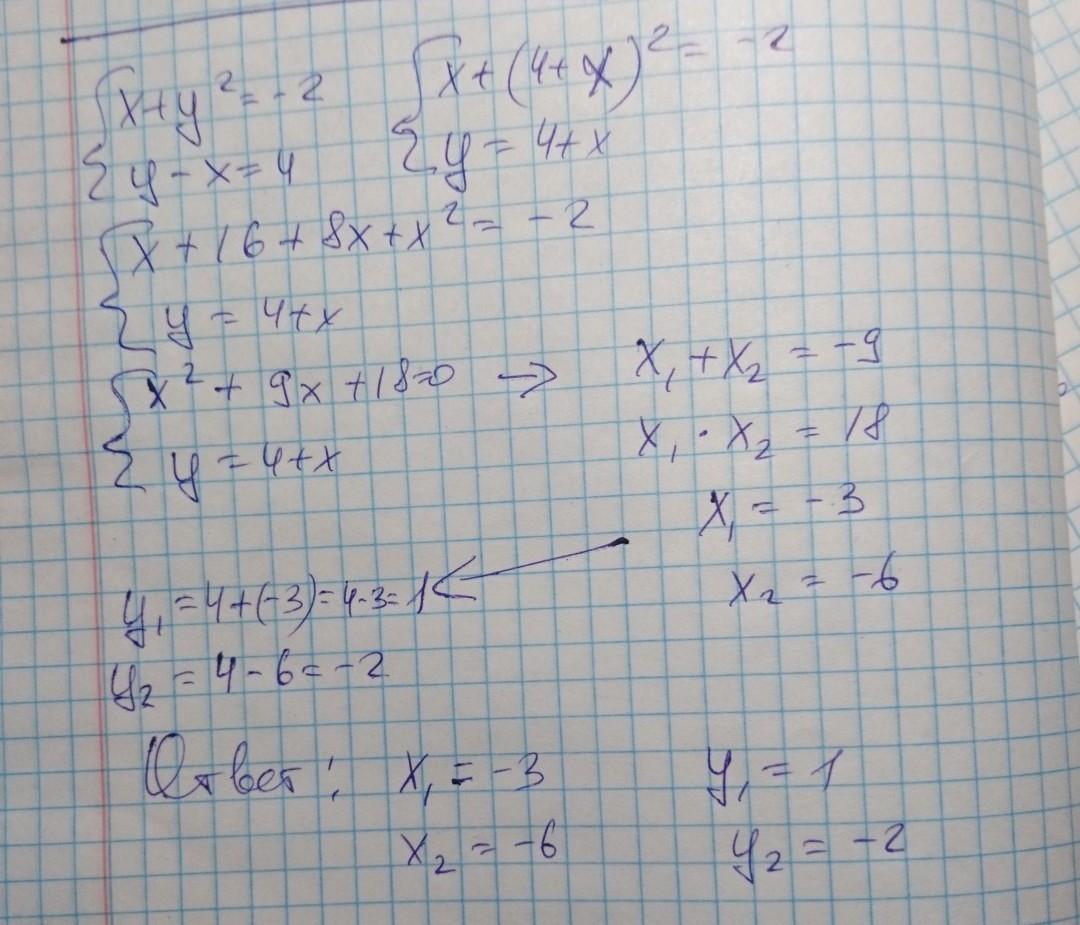 x+y²=-2    x+(4+x)²=-2
y-x=4    y=4+x
x+16+8x+x²=-2
y=4+x
x²+9x+18=0 → x₁+x₂=-9
y=4+x    x₁·x₂=18
x₁=-3
x₂=-6
y₁=4+(-3)=4-3=1
y₂=4-6=-2
Ответ: x₁=-3    y₁=1
x₂=-6    y₂=-2